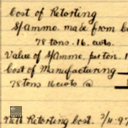 Cost of Retorting
Mamme. made from
78 tons. 16. cwts.
Value of Mamme. per ton.
Cost of Manufacturing
78 tons 16 cwts @
Nett Retorting Cost. 3/11.97